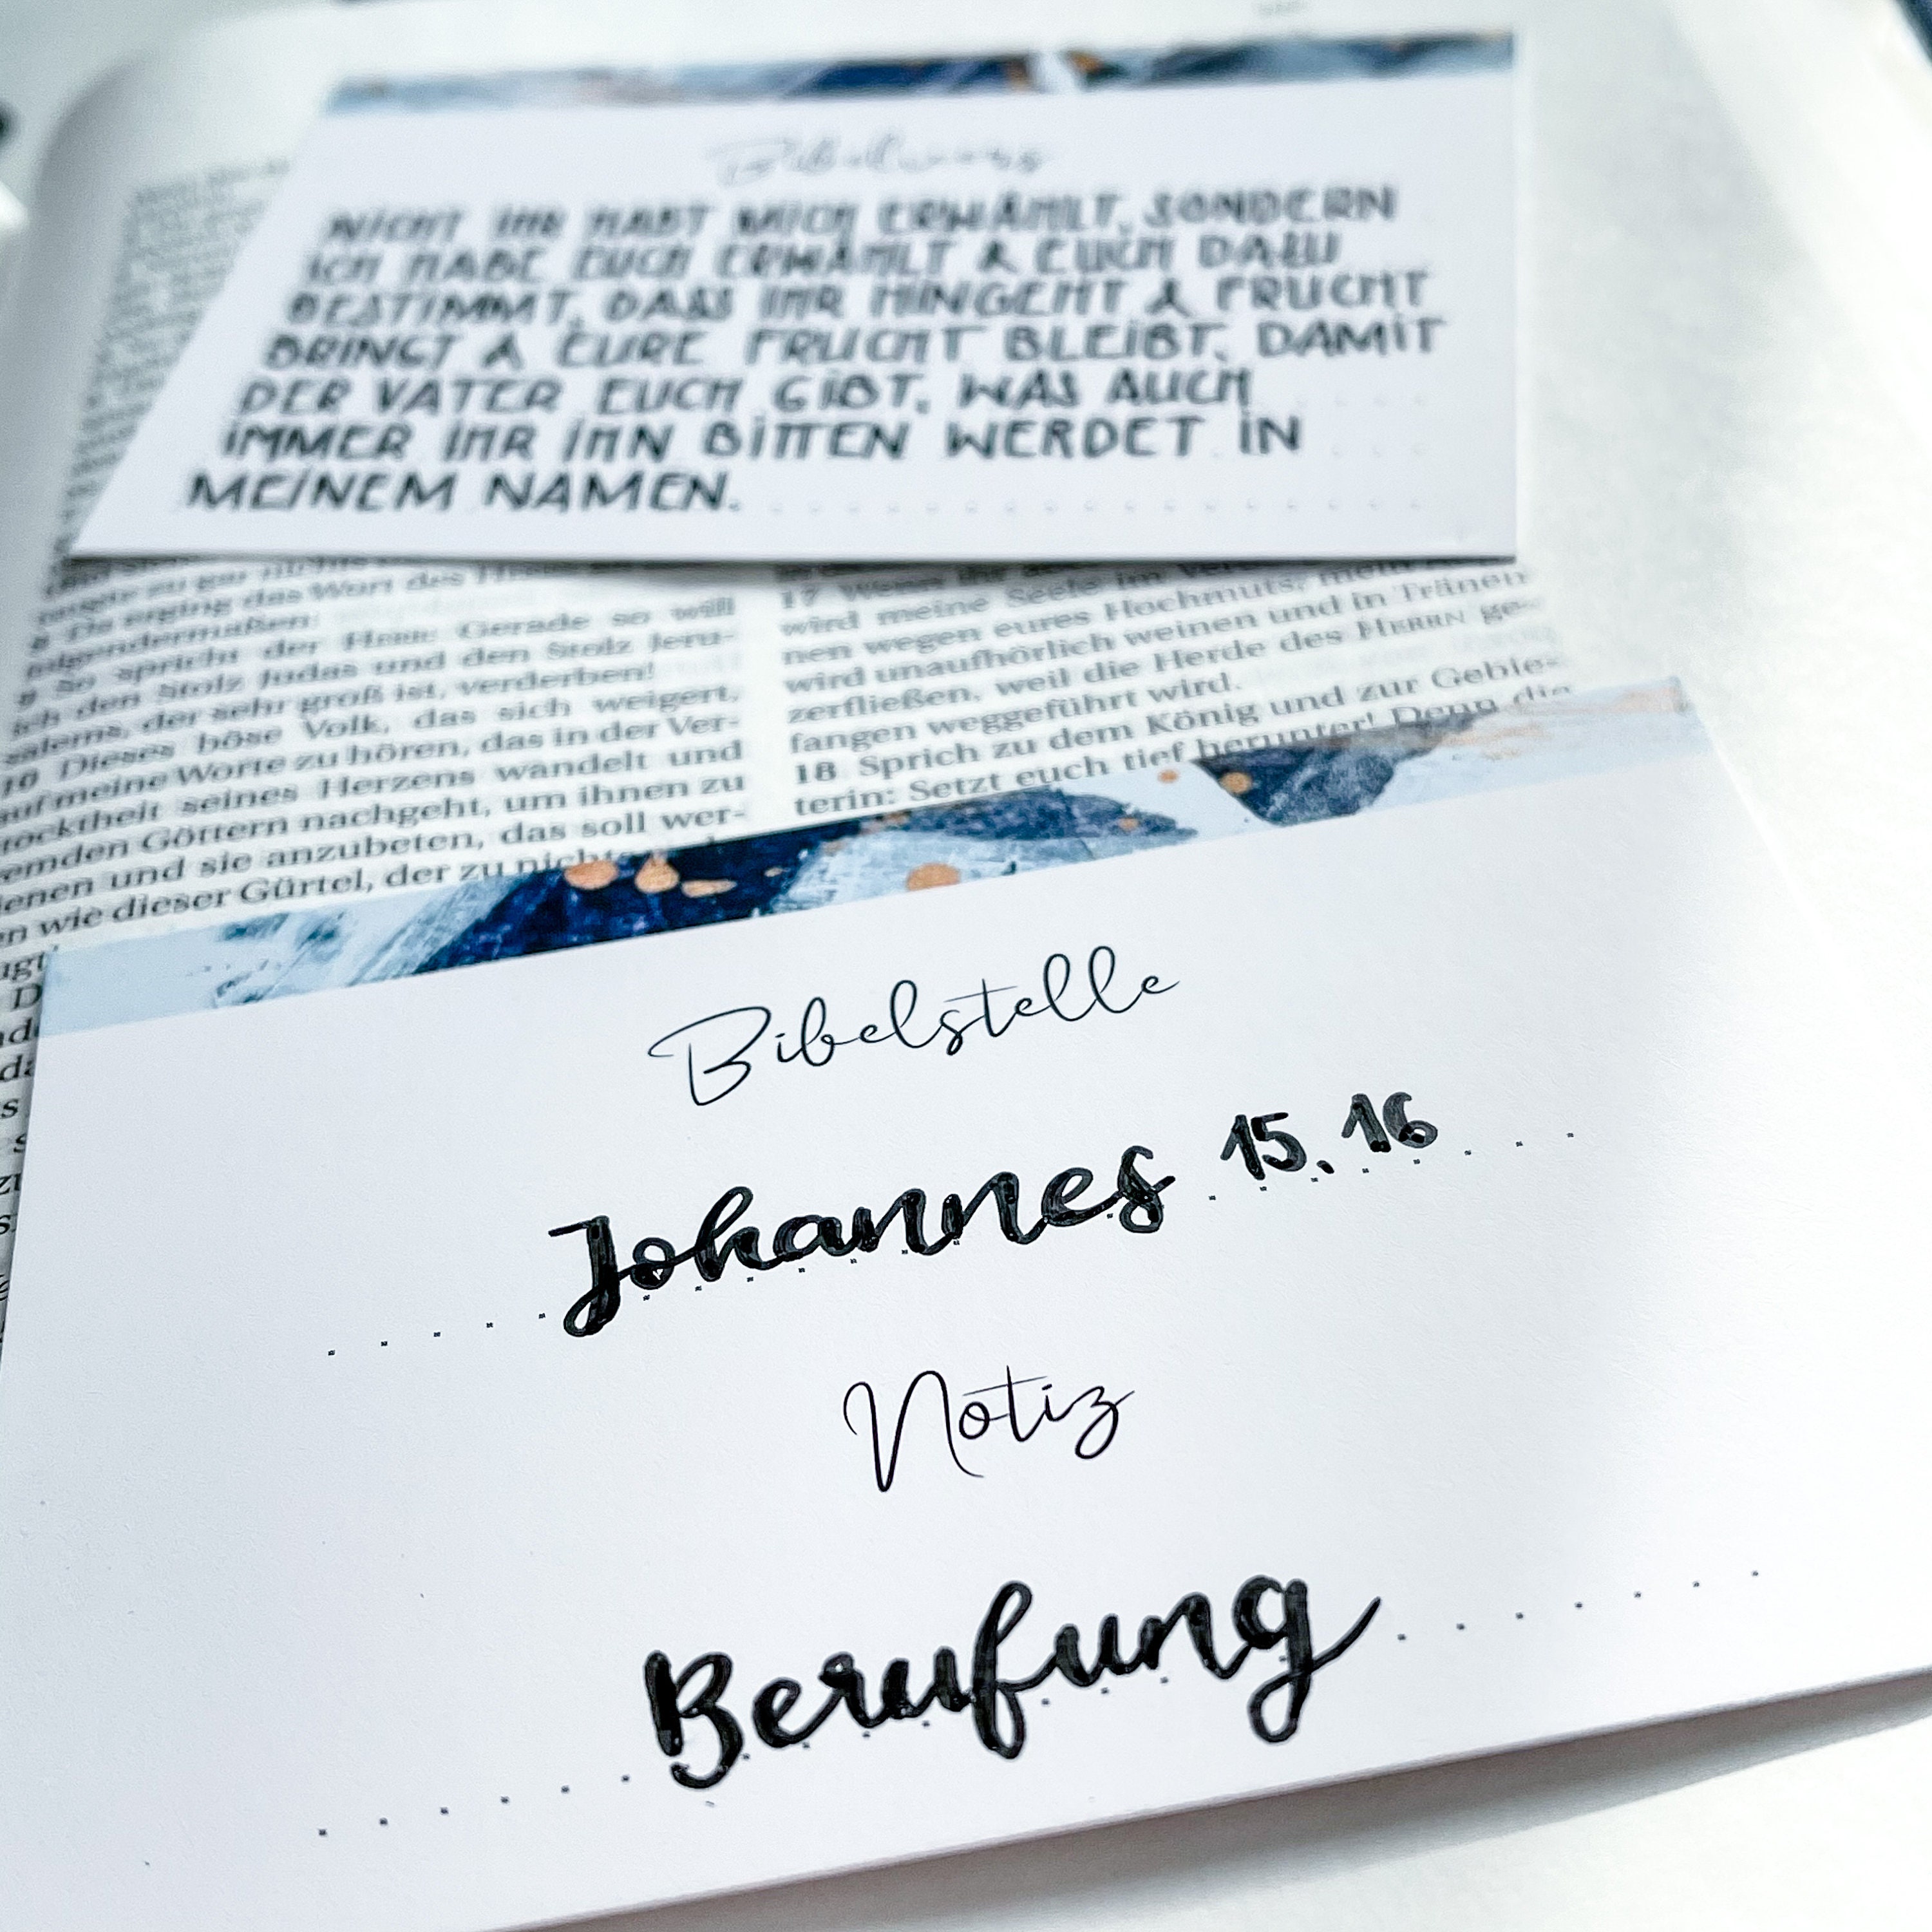 Bibelvers
NICHT IHR HABT MICH ERWÄHLT, SONDERN
ICH HABE EUCH ERWÄHLT & EUCH DAZU
BESTIMMT, DASS IHR HINGEHT & FRUCHT
BRINGT & EURE FRUCHT BLEIBT, DAMIT
DER VATER EUCH GIBT, WAS AUCH
IMMER IHR IHN BITTEN WERDET IN
MEINEM NAMEN.
taugte zu gar nichts
8 Da erging das Wort des
folgendermaßen:
9 So spricht der HERR: Gerade so will
ich den Stolz Judas und den Stolz Jeru-
salems, der sehr groß ist, verderben!
10 Dieses böse Volk, das sich weigert,
auf meine Worte zu hören, das in der Ver-
stocktheit seines Herzens wandelt und
fremden Göttern nachgeht, um ihnen zu
dienen und sie anzubeten, das soll wer-
den wie dieser Gürtel, der zu nichts
17 Wenn ihr
wird meine Seele im
nen wegen eures Hochmuts; mein
wird unaufhörlich weinen und in Tränen
zerfließen, weil die Herde des HERRN ge-
fangen weggeführt wird.
18 Sprich zu dem König und zur Gebie-
terin: Setzt euch tief herunter! Denn die
Bibelstelle
Johannes 15, 16
Notiz
Berufung